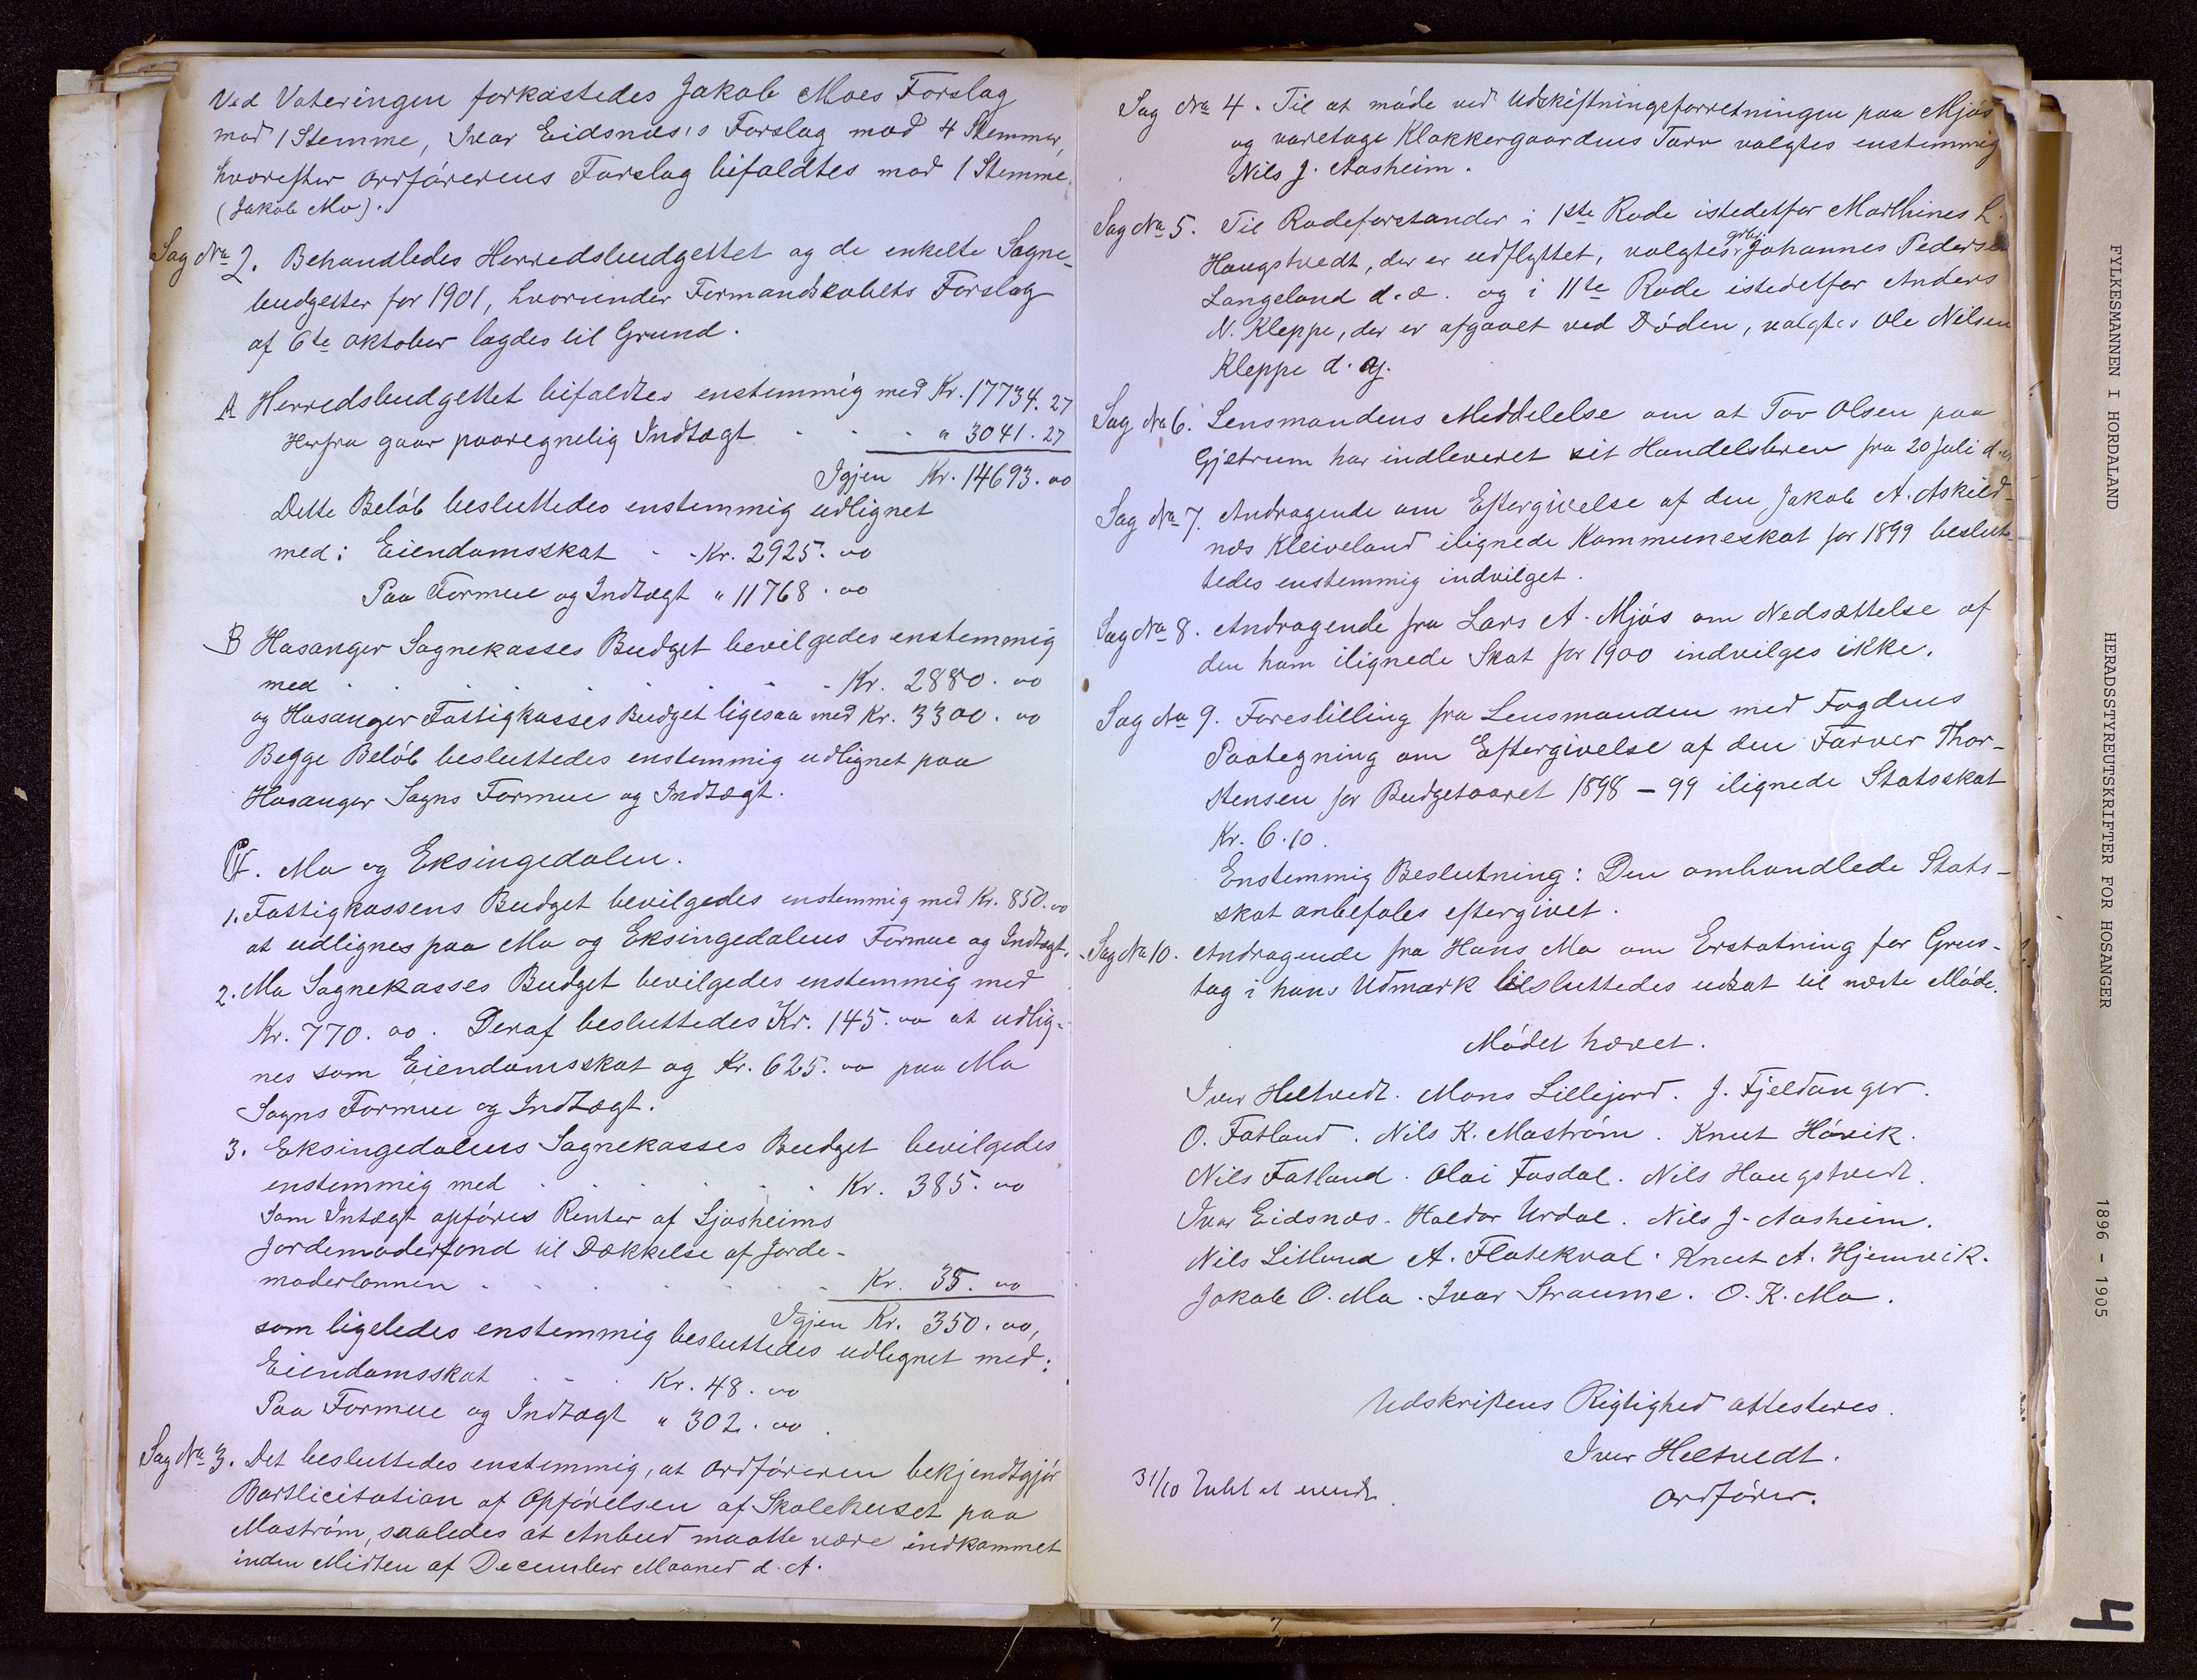 Ved Voteringen forkastedes Jakob Moes Forslag
mod 1 Stemme, Ivar Eidsnæs's Forslag mod 4 Stemmer,
hvorefter Ordførerens Forslag bifaldtes mod 1 Stemme.
(Jakob Mo).
Sag No 2. Behandledes Herredsbudgettet og de enkelte Sogne-
budgetter for 1901, hvorunder Formandskabets Forslag
af 6te Oktober lagdes til Grund.
A Herredsbudgettet bifaldtes enstemmig med Kr. 17734.27
Herfra gaar paaregnelig Indtægt - - - " 3041.27
Igjen Kr. 14693.00
Dette Beløb besluttedes enstemmig udlignet
med: Eiendomsskat - - Kr. 2925.00
Paa Formue og Indtægt " 11768.00
B Hosanger Sognekasses Budget bevilgedes enstemmig
med - - - - - - Kr. 2880.00
og Hosanger Fattigkasses Budget ligesaa med Kr. 3300.00
Begge Beløb besluttedes enstemmig udlignet paa
Hosanger Sogns Formue og Indtægt.
C. Mo og Eksingedalen.
1. Fattigkassens Budget bevilgedes enstemmig med Kr. 850.00
at udlignes paa Mo og Eksingedalens Formue og Indtægt.
2. Mo Sognekasses Budget bevilgedes enstemmig med
Kr. 770.00. Deraf besluttedes Kr. 145.00 at udlig-
nes som Eiendomsskat og Kr. 625.00 paa Mo
Sogns Formue og Indtægt.
3. Eksingedalens Sognekasses Budget bevilgedes
enstemmig med - - - - - Kr. 385.00
Som Intægt opføres Renter af Ljosheims
Jordemoderfond til Dækkelse af Jorde-
moderlønnen - - - - - Kr. 35.00
Igjen Kr. 350.00,
som ligeledes enstemmig besluttedes udlignet med:
Eiendomsskat - - - Kr. 48.00
Paa Formue og Indtægt " 302.00.
Sag No 3. Det besluttedes enstemmig, at Ordføreren bekjendtgjør
Bortlicitation af Opførelsen af Skolehuset paa
Mostrøm, saaledes at Anbud maatte være indkommet
inden Midten af December Maaned d. A.
Sag No 4. Til at møde ved Udskiftningsforretningen paa Mjøs
og varetage Klokkergaardens Tarv valgtes enstemmig
Nils J. Aasheim.
Sag No 5. Til Rodeforstander i 1ste Rode istedetfor Marthines L.
Haugstvedt, der er udflyttet, valgtes grbr. Johannes Pedersen
Langeland d. æ. og i 11te Rode istedetfor Anders
N. Kleppe, der er afgaaet ved Døden, valgtes Ole Nilsen
Kleppe d. y.
Sag No 6. Lensmandens Meddelelse om at Tov Olsen paa
Gjetrum har indleveret sit Handelsbrev fra 20 Juli d. a.
Sag No 7. Andragende om Eftergivelse af den Jakob A. Askild-
næs Kleiveland ilignede Kommuneskat for 1899 beslut-
tedes enstemmig indvilget.
Sag No 8. Andragende fra Lars A. Mjøs om Nedsættelse af
den ham ilignede Skat for 1900 indvilges ikke.
Sag No 9. Forestilling fra Lensmanden med Fogdens
Paategning om Eftergivelse af den Farver Thor-
stensen for Budgetaaret 1898-99 ilignede Statsskat
Kr. 6.10.
Enstemmig Beslutning: Den omhandlede Stats-
skat anbefales eftergivet.
Sag No 10. Andragende fra Hans Mo om Erstatning for Grus-
tag i hans Udmark besluttedes udsat til næste Møde.
Mødet hævet.
Iver Heltvedt. Mons Lillejord. J. Fjeldanger.
O. Fatland. Nils K. Mostrøm. Knut Høvik.
Nils Fatland. Olai Fosdal. Nils Haugstvedt.
Ivar Eidsnæs. Haldor Urdal. Nils J. Aasheim.
Nils Litland A. Flatekval. Knut A. Hjemvik.
Jakob O. Mo. Ivar Straume. O. K. Mo.
Udskriftens Rigtighed attesteres.
Iver Heltvedt.
Ordfører.
31/10
FYLKESMANNEN I HORDALAND HERADSSTYREUTSKRIFTER FOR HOSANGER 1896 - 1905
4